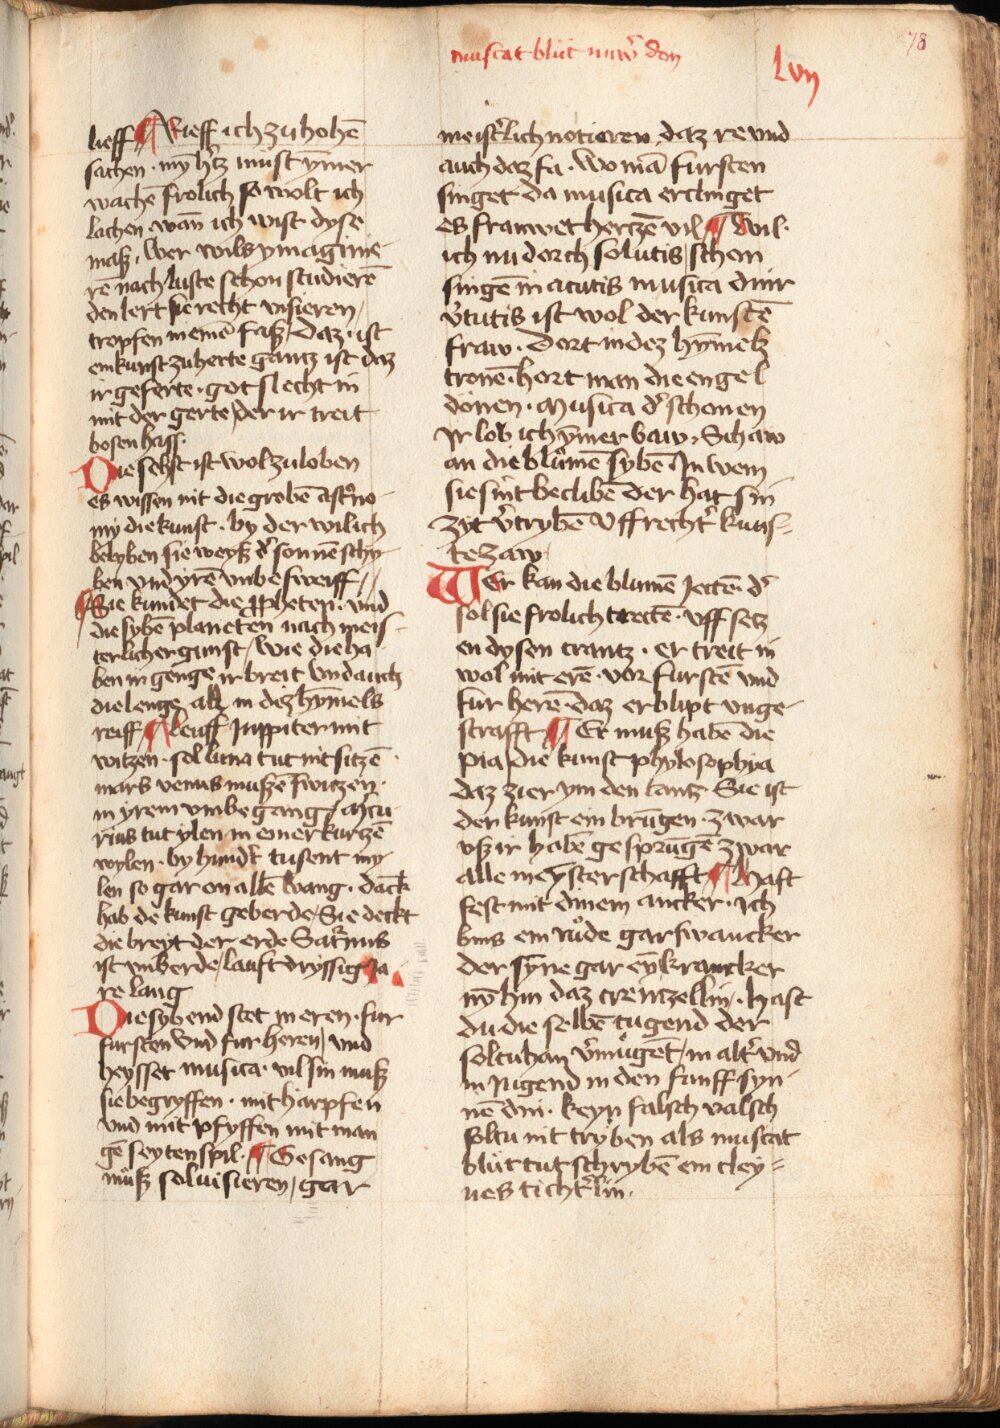 muscat blüt nuw̄ don
lvıȷ
78
lieff ¶ Rieff ich zu hohē
sachen · my h'tz must ȳmer
wachē frolich so wolt ich
lachen · wān ich wist dyse
maß, Wer wils ymaginie
rē nach luste schon studierē
den lert sie recht visieren /
tropfen in einē faß / Daz · ist
ein kunst zu herte gantz ist daz
ir geferte · got slecht in
mit der gerte / der ir treit
bosen hass ·
Die sehst ist wol zu loben
es wissen nit die grobē astrono
my die kunst · by der wil ich
belyben sie weyß d' sonnē schy
ben vnd yrē vmbesweiff /
¶ Sie kundet die ꝓpheten · vnd
die sybē planeten nach meis
terlicher gunst / Wie die ha
ben in genge ir breit vnd auch
die lenge als in dez hȳmels
reiff / ¶ Uff Juppiter mit
witzen · sol luna tut nit sitzē ·
mars venus mußē switzen ·
in yrem vmbegang / Mcu
rius tut ylen in einer kurtzē
wylen · by hund't tusent my
len so gar on allē wang · danck
hab de kunst geberde / Sie deckt
die breyt der erde Saturnus
ist vnberde / lauft dryssig Ja
re lang
Die sybend stet in eren · fur
fursten vnd fur heren / vnd
heysset musica · vil sin muß
sie begryffen · mit harpfen
vnd mit pfyffen mit man
gē seyten spil · ¶ Gesang
muß soluisieren / gar
meist'lich notieren · daz re vnd
auch daz fa · Wo mā fursten
singet da musica erclinget
es frauwet hertzē vil ¶ Wil ·
ich nu dorch solutis / schon
singē in acutis musica dinr
v'tutis ist wol der kunstē
fraw · Dort in dez hȳmels
tronē · hort man die engel
donen · Musica d' schonen
Ir lob ich ȳmer baw, Schaw
an die blumē sybē In wem
sie sint beclibē der hat sin
zyt v'trybē Uff recht' kuns-
te zaw
Wer kan die blumē Jettē · d'
sol sie frolich trettē · uff setz
en dysen crantz · er treit in
wol mit erē · vor furstē vnd
fur herē daz er blipt vnge
strafft ¶ Er muß habē die
pia die kunst phylosophia
daz zier ym den lantz Sie ist
der kunst ein brūgen · zwar
vß ir habē gesprūgē zwar
alle meysterschafft ¶ Haft
fest mit dinem ancker · Ich
bins ein rude gar swancker
der sȳne gar eȳ krancker
nȳ hin daz crentzellin · hast
du die selbē tugend der
soltu han v'mugēt / in alt' vnd
in Jugend in den funff syn
nē din · keyn falsch valsch
soltu nit tryben als muscat
blut tut schrybē ein cley=
nes ticht'lin ·